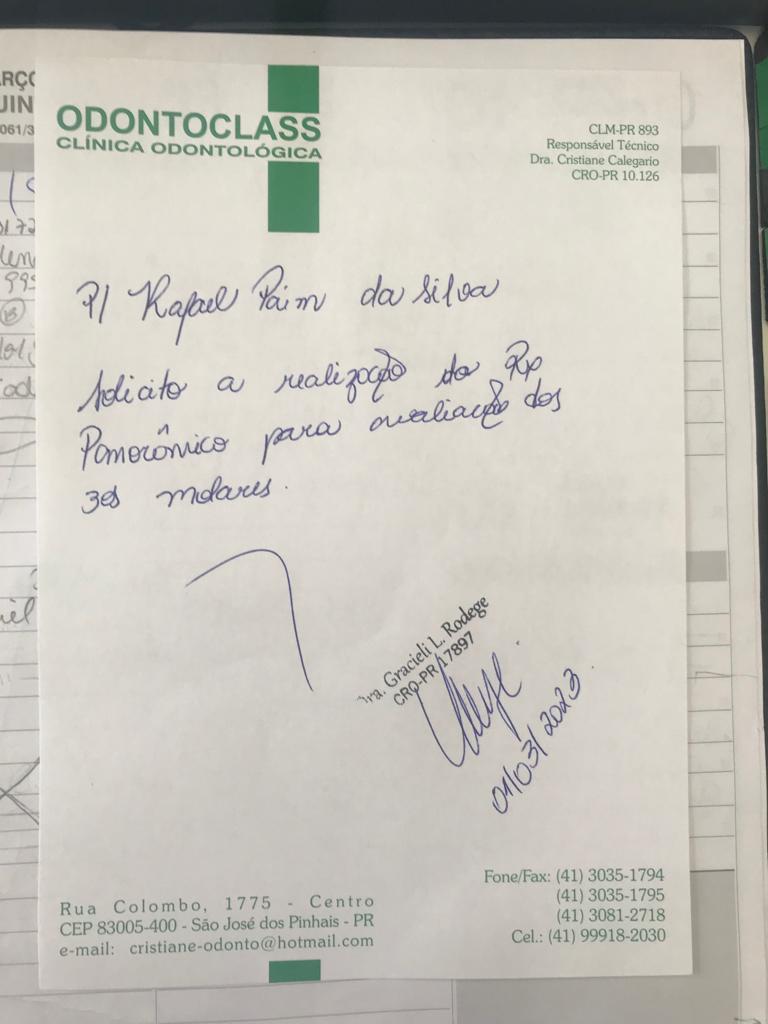 ODONTOCLASS
CLÍNICA ODONTOLÓGICA
CLM-PR 893
Responsável Técnico
Dra. Cristiane Calegario
CRO-PR 10.126
P/ Rafael Paim da Silva
Solicito a realização do Rx
Panorâmico para avaliação dos
3os molares.
Dra. Gracieli L. Rodege
CRO-PR 17897
01/03/2023
Rua Colombo, 1775 - Centro
CEP 83005-400 - São José dos Pinhais - PR
e-mail: cristiane-odonto@hotmail.com
Fone/Fax: (41) 3035-1794
(41) 3035-1795
(41) 3081-2718
Cel.: (41) 99918-2030